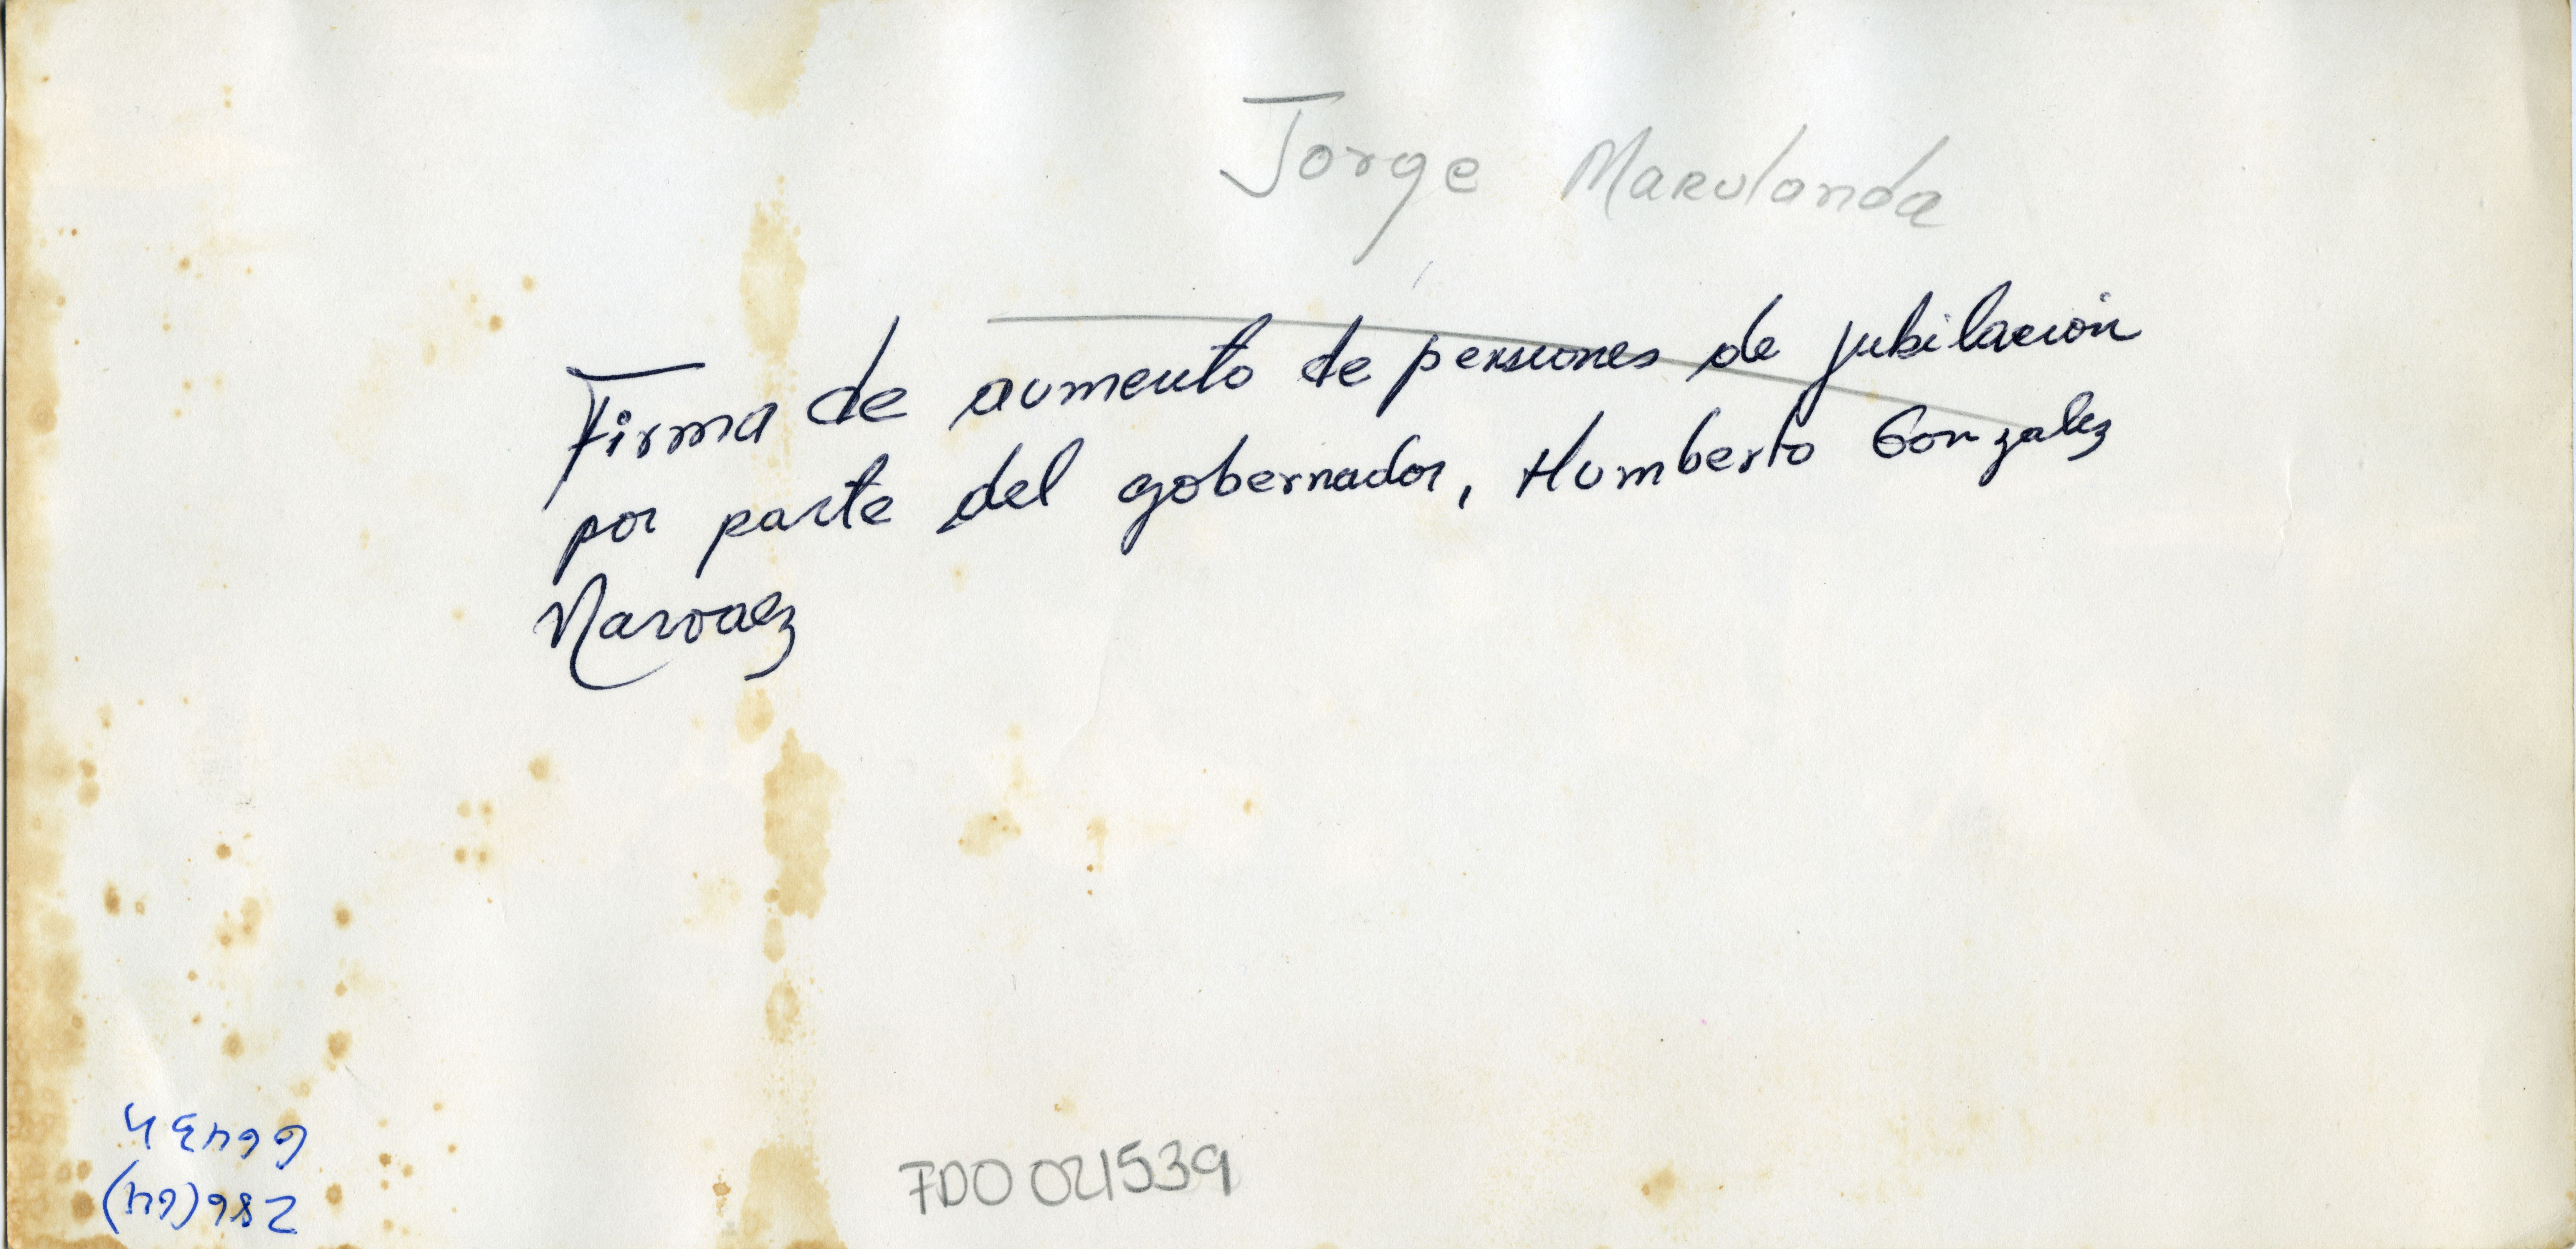 Jorge Marulanda
Firma de aumento de pensiones de jubilación
por parte del gobernador, Humberto Gonzalez
Narvaez
FDO 021539
286(64)
66434